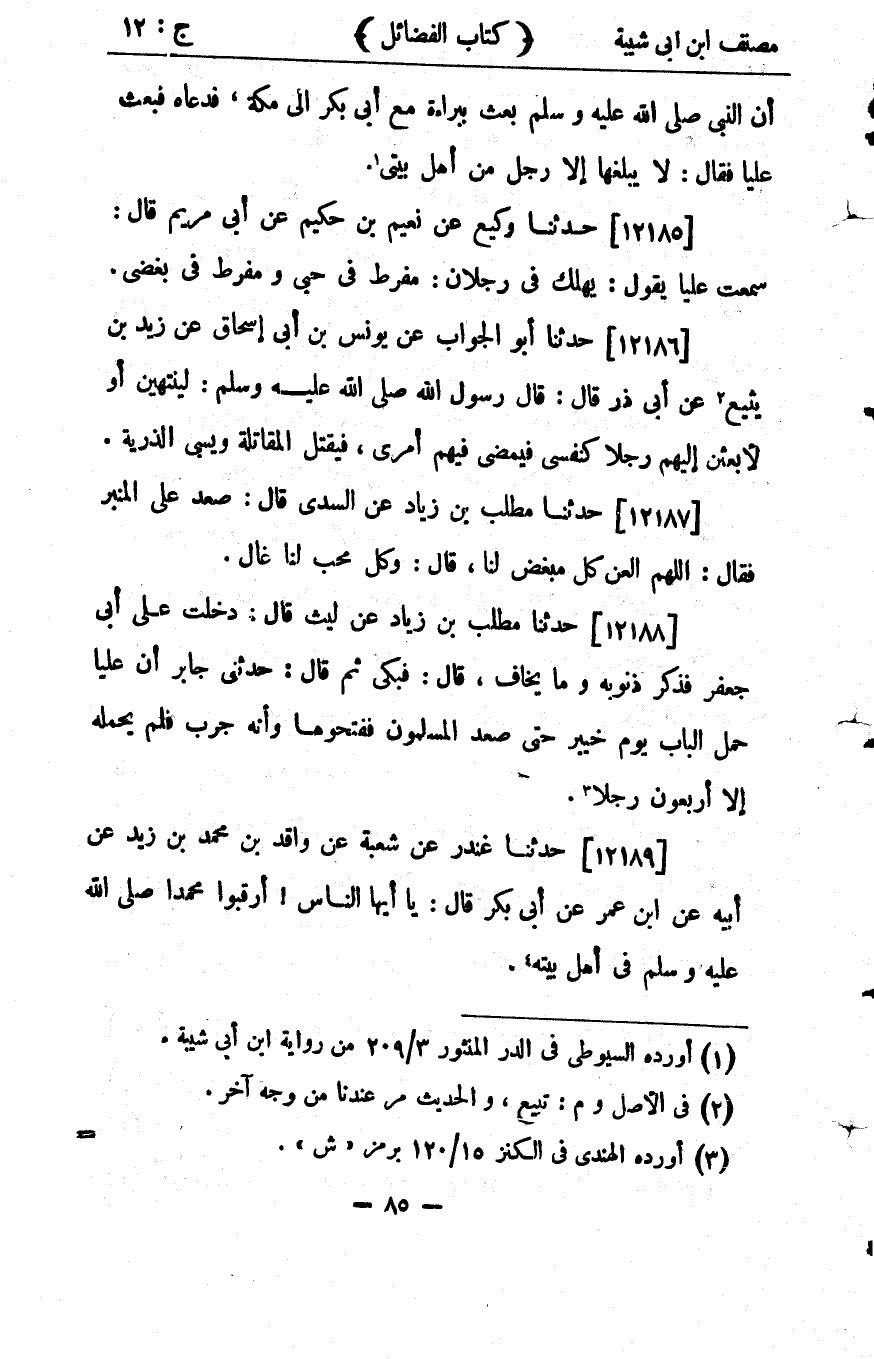 مصنف ابن ابى شيبة ﴿ كتاب الفضائل ﴾ ج : ١٢
أن النبى صلى الله عليه و سلم بعث ببراءة مع أبى بكر الى مكة ، فدعاه فبعث
عليا فقال : لا يبلغها إلا رجل من أهل بيتى١.
[١٢١٨٥] حدثنا وكيع عن نعيم بن حكيم عن أبى مريم قال :
سمعت عليا يقول : يهلك فى رجلان : مفرط فى حبى و مفرط فى بغضى .
[١٢١٨٦] حدثنا أبو الجواب عن يونس بن أبى إسحاق عن زيد بن
يثيع٢ عن أبى ذر قال : قال رسول الله صلى الله عليه وسلم : لينتهين أو
لأبعثن إليهم رجلا كنفسى فيمضى فيهم أمرى ، فيقتل المقاتلة ويسبى الذرية .
[١٢١٨٧] حدثنا مطلب بن زياد عن السدى قال : صعد على المنبر
فقال : اللهم العن كل مبغض لنا ، قال : وكل محب لنا غال .
[١٢١٨٨] حدثنا مطلب بن زياد عن ليث قال : دخلت على أبى
جعفر فذكر ذنوبه و ما يخاف ، قال : فبكى ثم قال : حدثنى جابر أن عليا
حمل الباب يوم خيبر حتى صعد المسلمون ففتحوها وأنه جرب فلم يحمله
إلا أربعون رجلا٣ .
[١٢١٨٩] حدثنا غندر عن شعبة عن واقد بن محمد بن زيد عن
أبيه عن ابن عمر عن أبى بكر قال : يا أيها الناس ! أرقبوا محمدا صلى الله
عليه و سلم فى أهل بيته٤ .
(١) أورده السيوطى فى الدر المنثور ٢٠٩/٣ من رواية ابن أبى شيبة .
(٢) فى الأصل و م : تبيع ، و الحديث مر عندنا من وجه آخر .
(٣) أورده الهندى فى الكنز ١٢٠/١٥ برمز « ش » .
=
— ٨٥ —